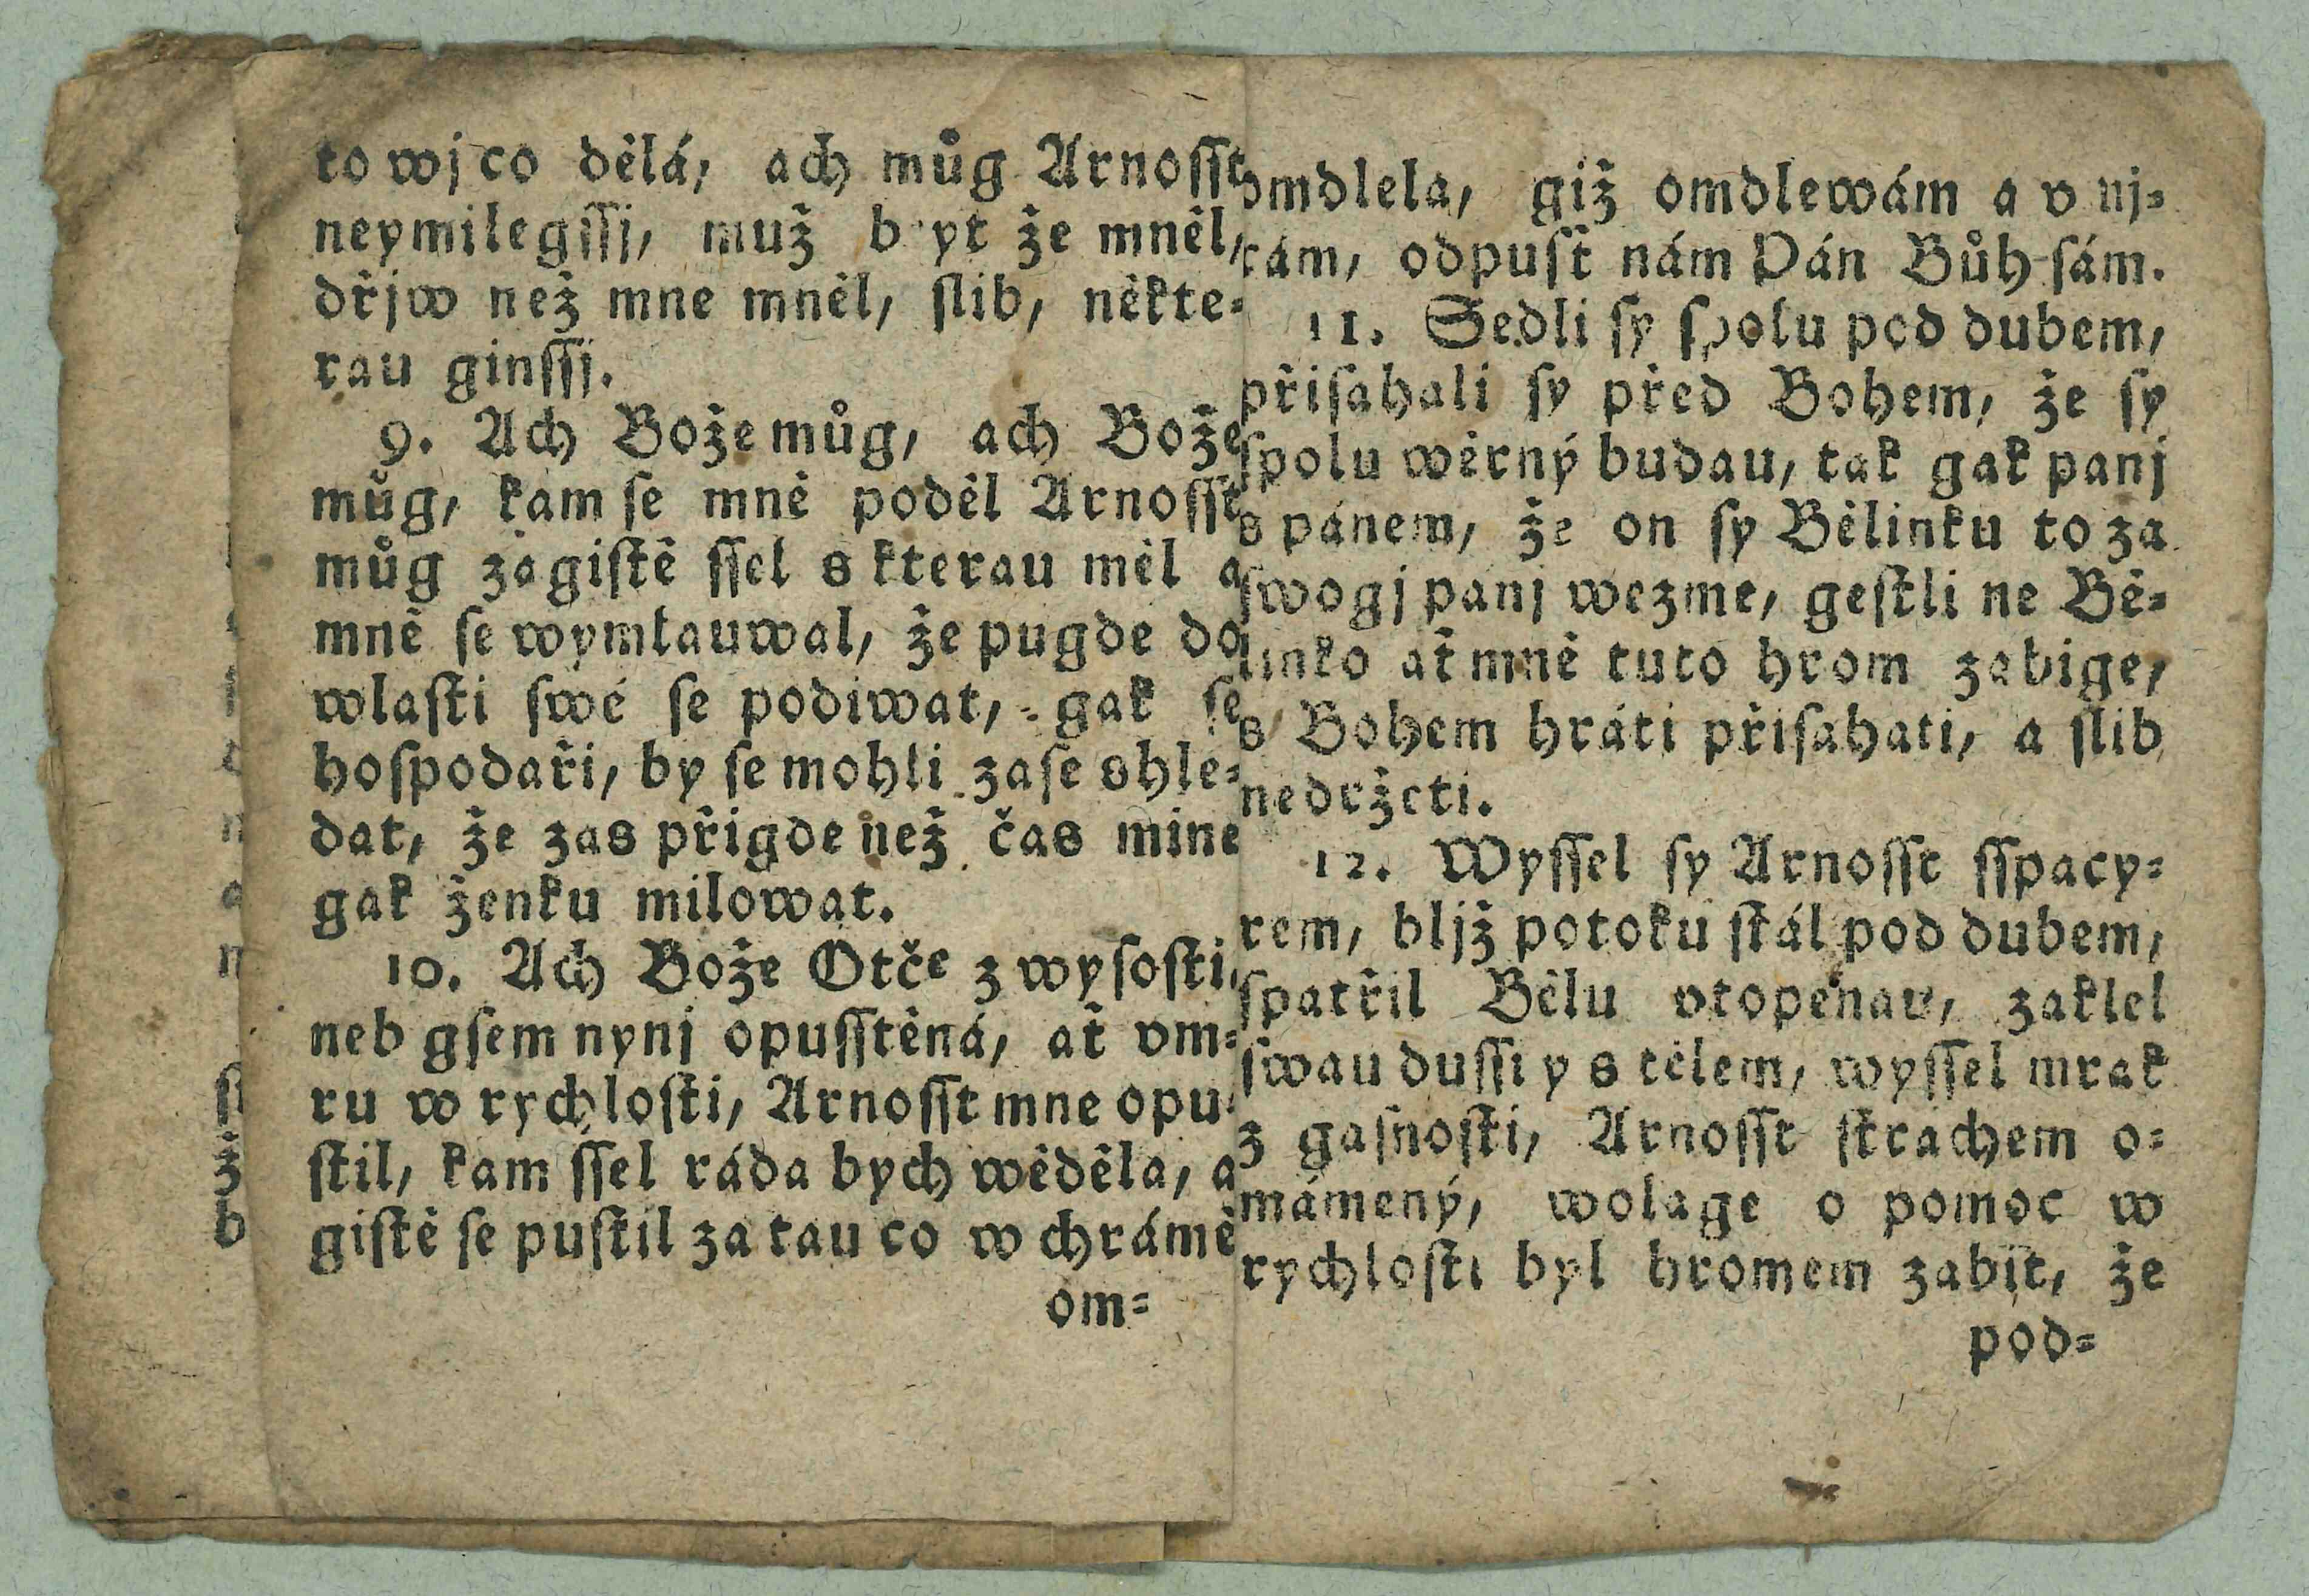 to wj co dělá, ach můg Arnosst
neymilegssj, muž b yt že mněl,
dřjw než mne mněl, slib, někte-
rau ginssj.
9. Ach Bože můg, ach Bože
můg, kam se mně poděl Arnosst
můg zagistě ssel s kterau měl a
mně se wymlauwal, že pugde do
wlasti swé se podiwat, gak se
hospodaři, by se mohli zase shle-
dat, že zas přigde než čas mine
gak ženku milowat.
10. Ach Bože Otče z wysosti,
neb gsem nynj opusstěná, ať vm-
ru w rychlosti, Arnosst mne opu-
stil, kam ssel ráda bych wěděla, a
gistě se pustil za tau co w chrámě
om-
omdlela, giž omdlewám a v nj-
rám, odpusť nám Pán Bůh sám.
11. Sedli sy spolu pod dubem,
přisahali sy před Bohem, že sy
spolu wěrný budau, tak gak panj
s pánem, že on sy Bělinku to za
swogj panj wezme, gestli ne Bě-
linko ať mně tuto hrom zabige,
s Bohem hráti přisahati, a slib
nedržeti.
12. Wyssel sy Arnosst sspacy-
rem, bljž potoku stál pod dubem,
spatřil Bělu vtopenau, zaklel
swau dussi y s tělem, wyssel mrak
z gasnosti, Arnosst strachem o-
mámený, wolage o pomoc w
rychlosti byl hromem zabit, že
pod-